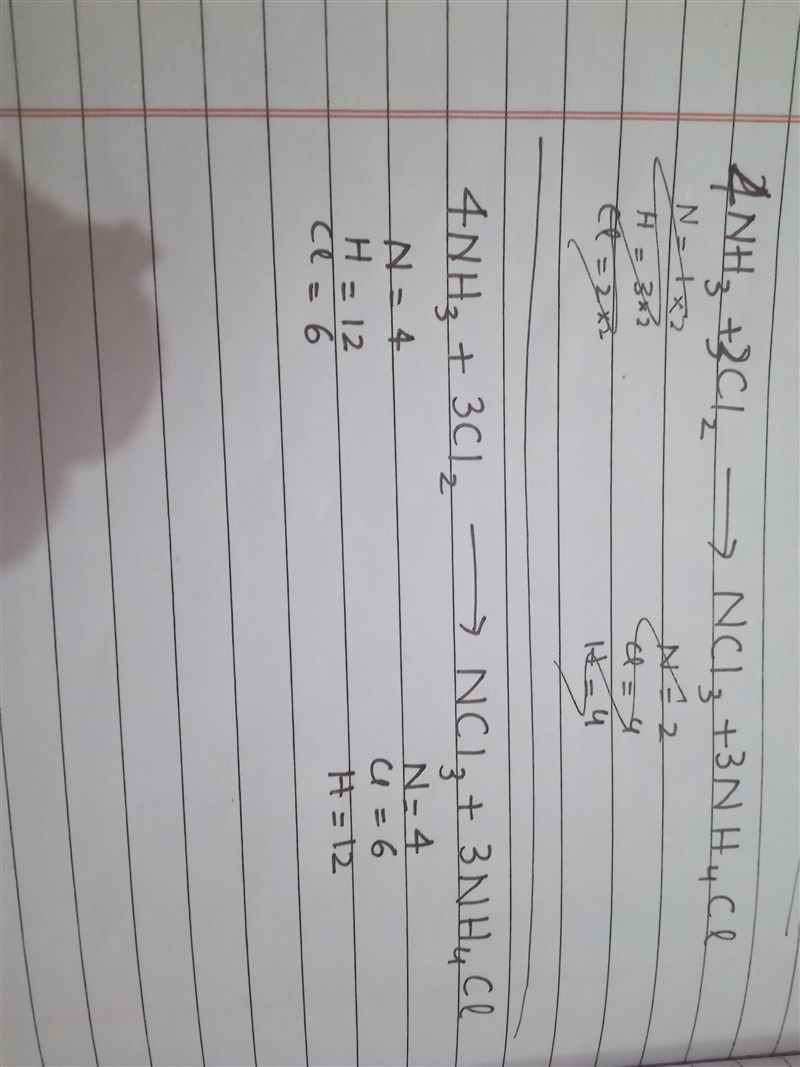 4NH₃ + 3Cl₂ ⟶ NCl₃ + 3NH₄Cl
N = 1×2 N = 2
H = 3×2 Cl = 4
Cl = 2×2 H = 4
4NH₃ + 3Cl₂ ⟶ NCl₃ + 3NH₄Cl
N = 4 N = 4
H = 12 Cl = 6
Cl = 6 H = 12